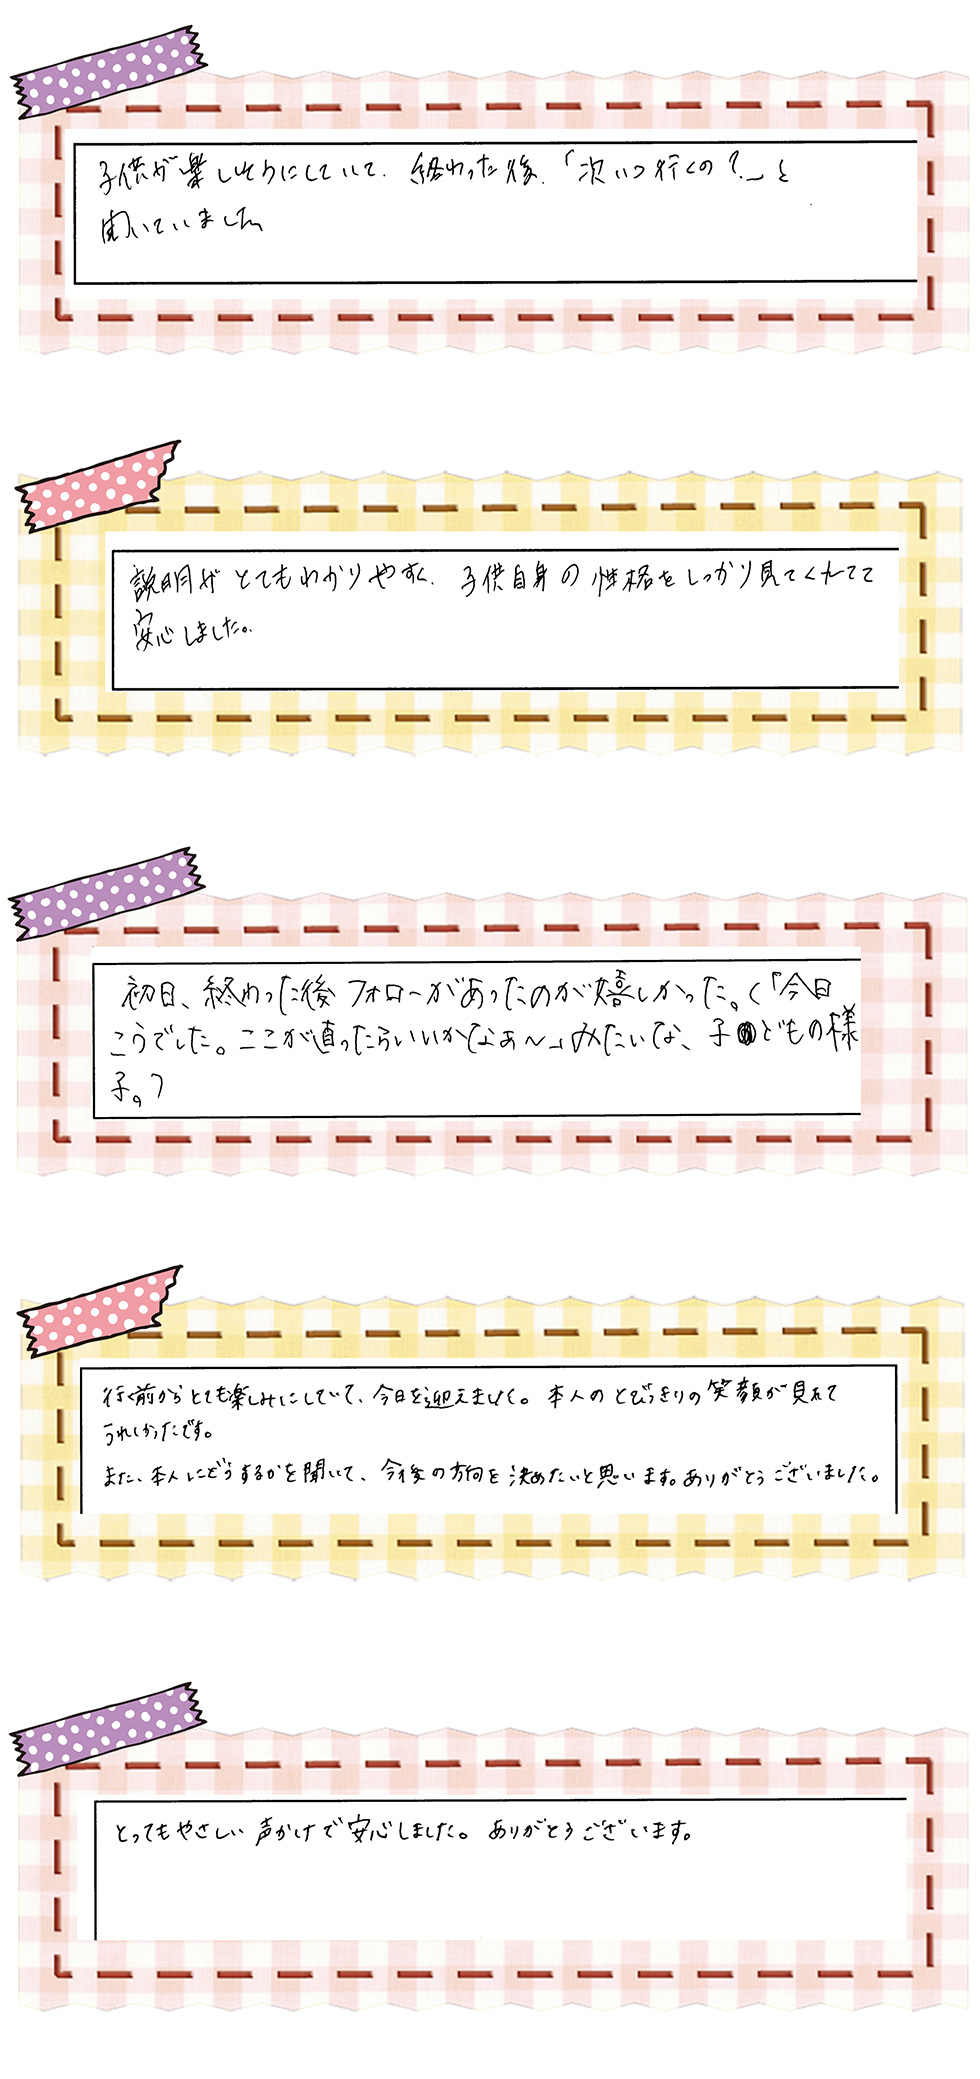 子供が楽しそうにしていて、終わった後、「次いつ行くの?」と
聞いていました
説明が とてもわかりやすく、子供自身の性格をしっかり見てくれてて
安心しました。
初日、終わった後フォローがあったのが嬉しかった。(「今日
こうでした。ここが直ったらいいかなぁ〜」みたいな、子どもの様
子。)
行く前からとても楽しみにしていて、今日を迎えました。本人のとびっきりの笑顔が見れて
うれしかったです。
また、本人にどうするかを聞いて、今後の方向を決めたいと思います。ありがとうございました。
とってもやさしい声かけで安心しました。ありがとうございます。